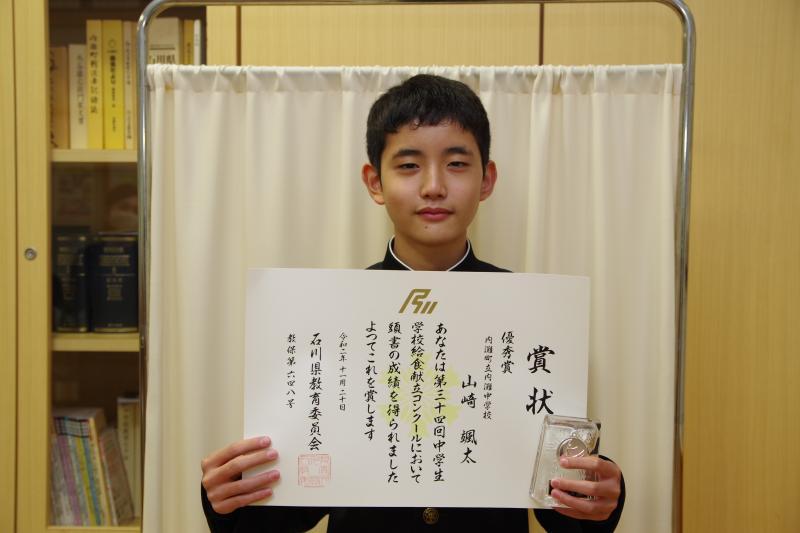 賞状
優秀賞
内灘町立内灘中学校
山﨑 颯太
あなたは第三十四回中学生
学校給食献立コンクールにおいて
頭書の成績を得られました
よつてこれを賞します
令和二年十一月二十日
石川県教育委員会
教保第六四八号